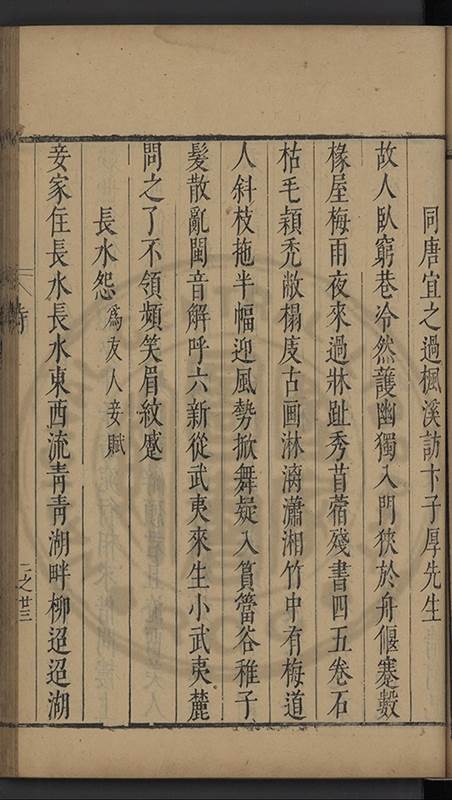 同唐宜之過楓溪訪卞子厚先生
故人臥窮巷冷然護幽獨入門狹於舟偃蹇數
椽屋梅雨夜來過牀趾秀苜蓿殘書四五卷石
枯毛穎禿敝榻庋古画淋漓瀟湘竹中有梅道
人斜枝拖半幅迎風勢掀舞疑入篔簹谷稚子
髮散亂閩音解呼六新從武夷來生小武夷麓
問之了不領頻笑眉紋蹙
長水怨 為友人妾賦
妾家住長水長水東西流青青湖畔柳迢迢湖
詩 二之廿三